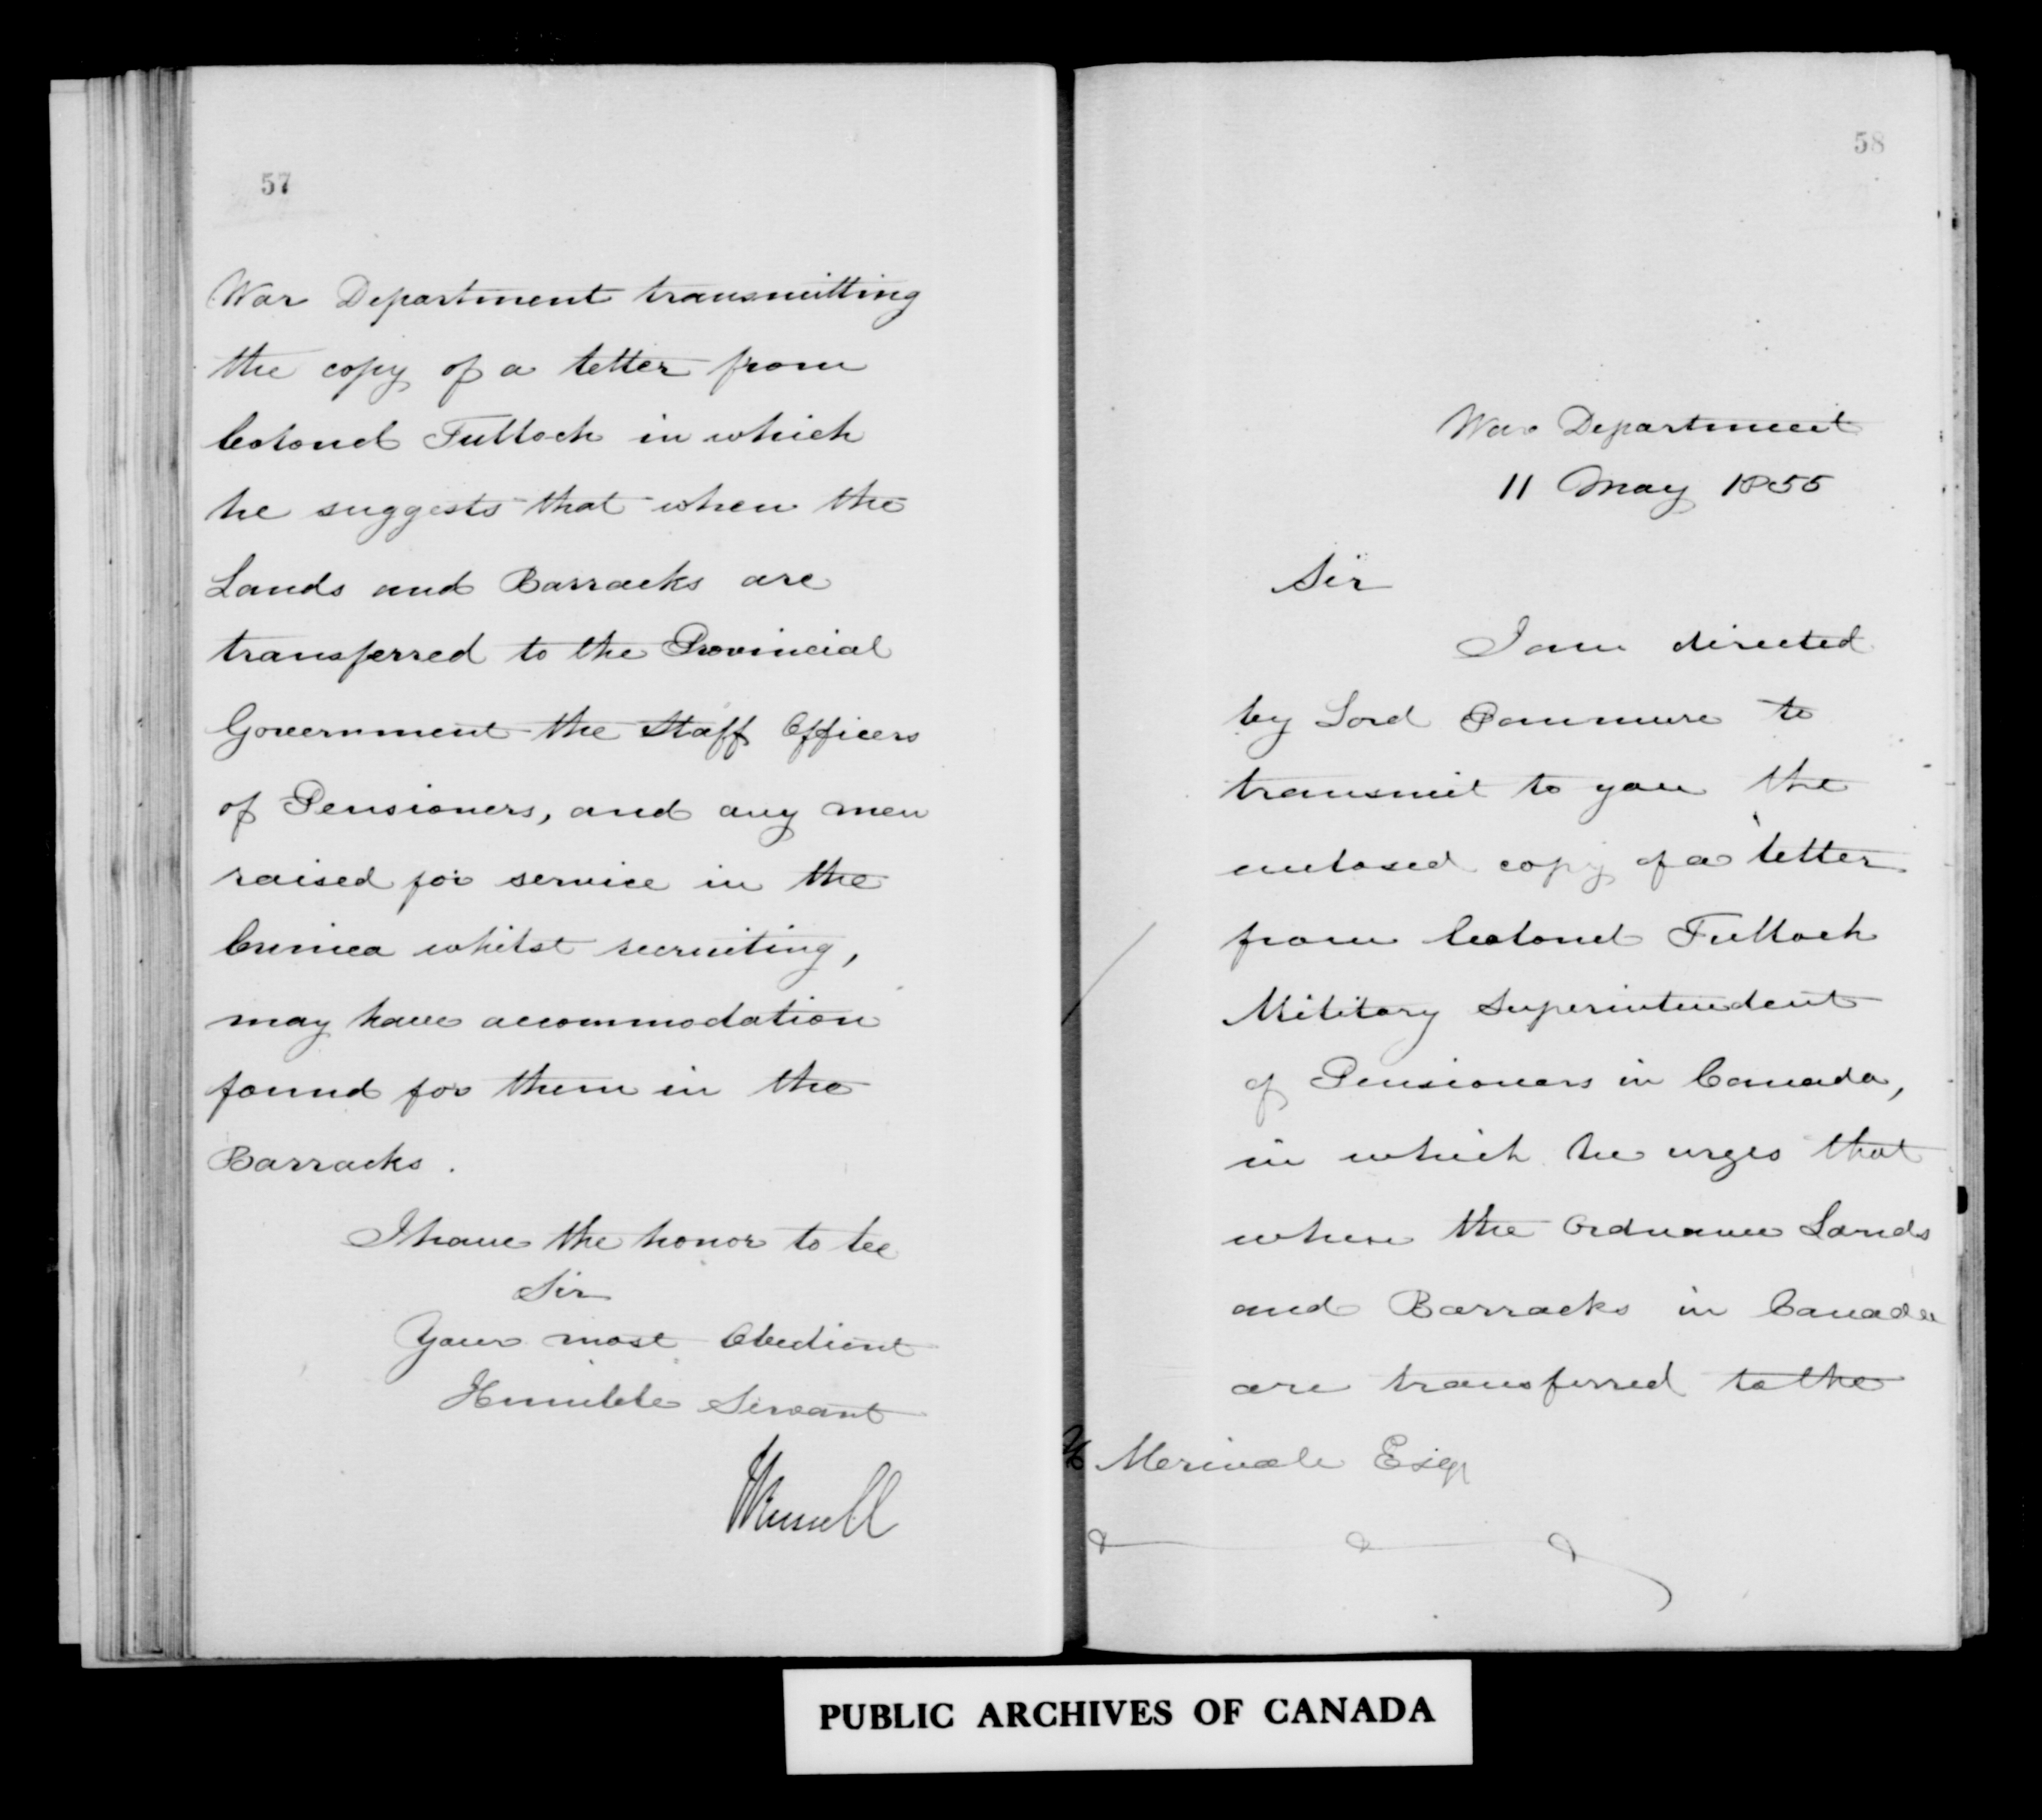 57
War Department transmitting
the copy of a letter from
Colonel Tulloch in which
he suggests that when the
Lands and Barracks are
transferred to the Provincial
Government the Staff Officers
of Pensioners, and any men
raised for service in the
Crimea whilst recruiting,
may have accommodation
found for them in the
Barracks.
I have the honor to be
Sir
Your most Obedient
Humble Servant
JRussell
58
War Department
11 May 1855
Sir
I am directed
by Lord Panmure to
transmit to you the
enclosed copy of a letter
from Colonel Tulloch
Military Superintendent
of Pensioners in Canada,
in which he urges that
when the Ordnance Lands
and Barracks in Canada
are transferred to the
H Merivale Esqr
PUBLIC ARCHIVES OF CANADA